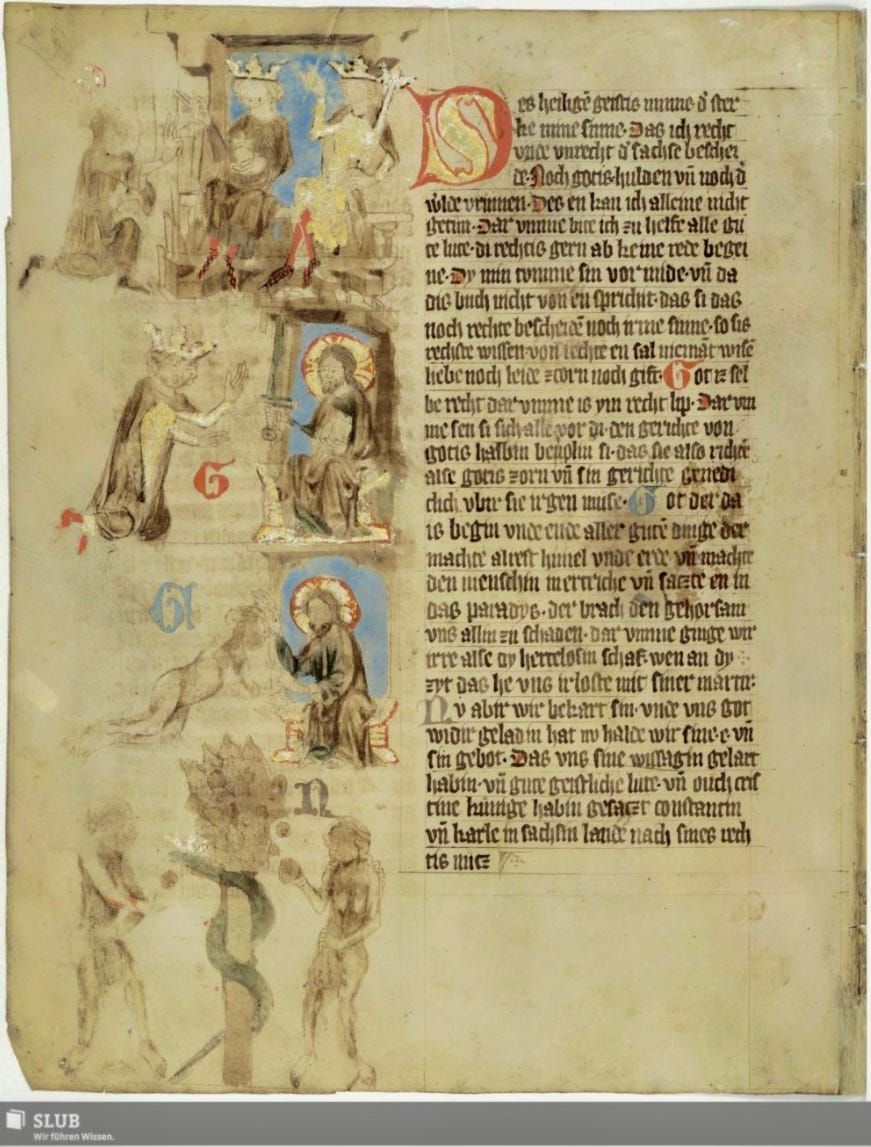 G
G
N
Des heiligē geistis minne d' ster
ke mine sinne. Das ich recht
vnde vnrecht d' sachse beschei
de. Noch gotis hulden vn̄ noch d'
w'lde vrumen. Des en kan ich alleine nicht
getun. Dar vmme bite ich zu helfe alle gu
te lute. di rechtis gern ab keine rede begei
ne. Dy min tumme sin vor mide. vn̄ da
dis buch nicht von en spricht. das si das
noch rechte bescheidē noch irme sinne. so sis
rechste wissen. von rechte en sal niemāt wisē
liebe noch leide zcorn noch gift. Got iz sel
be recht dar vmme is ym recht lip. Dar vm
me sen si sich alle vor di den gerichte von
gotis halbin beuoln si. das sie also richtē
alse gotis zorn vn̄ sin gerichte genedi
clich vbir sie irgen muse. Got der da
is begin vnde ende aller gutē dinge der
machte alrest himel vnde erde vn̄ machte
den menschin in ertriche vn̄ saczte en in
das paradys. der brach den gehorsam
vns allin zu schaden. dar vmme ginge wir
irre alse dy hertelosin schaf. wen an dy
zyt das he vns irloste mit siner martir.
Nv abir wir bekart sin. vnde vns got
widir geladin hat nv halde wir sine e vn̄
sin gebot. Das vns sine wissagin gelart
habin. vn̄ gute geistliche lute. vn̄ ouch cris
tine kunige habin gesaczt constantin
vn̄ karle in sachsin lande nach sines rech
tis
SLUB
Wir führen Wissen.